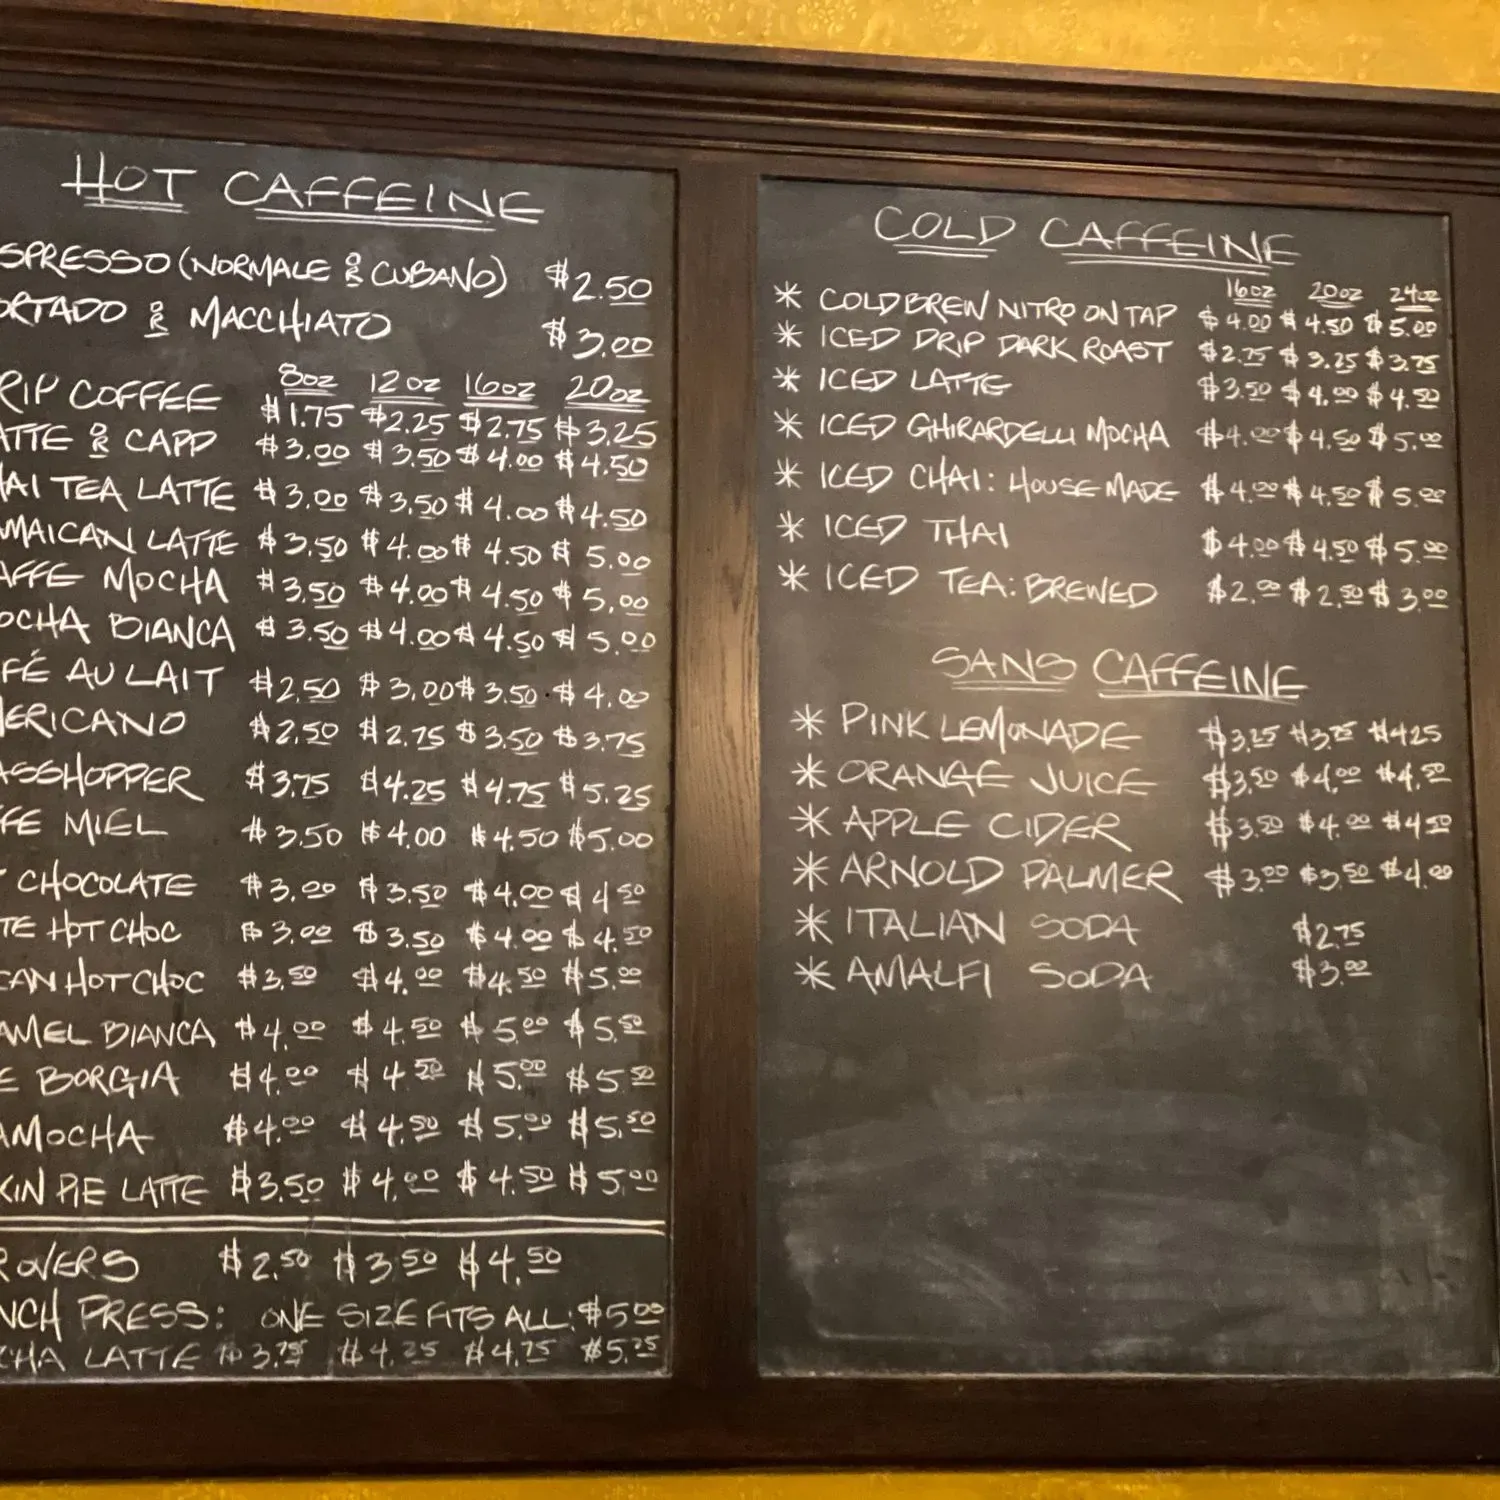 HOT CAFFEINE
SPRESSO (NORMALE OR CUBANO) $2.50
ORTADO OR MACCHIATO $3.00
8oz 12oz 16oz 20oz
RIP COFFEE $1.75 $2.25 $2.75 $3.25
ATTE OR CAPP $3.00 $3.50 $4.00 $4.50
HAI TEA LATTE $3.00 $3.50 $4.00 $4.50
AMAICAN LATTE $3.50 $4.00 $4.50 $5.00
AFFE MOCHA $3.50 $4.00 $4.50 $5.00
OCHA BIANCA $3.50 $4.00 $4.50 $5.00
FÉ AU LAIT $2.50 $3.00 $3.50 $4.00
ERICANO $2.50 $2.75 $3.50 $3.75
ASSHOPPER $3.75 $4.25 $4.75 $5.25
FE MIEL $3.50 $4.00 $4.50 $5.00
T CHOCOLATE $3.00 $3.50 $4.00 $4.50
TE HOT CHOC $3.00 $3.50 $4.00 $4.50
CAN HOT CHOC $3.50 $4.00 $4.50 $5.00
AMEL BIANCA $4.00 $4.50 $5.00 $5.50
E BORGIA $4.00 $4.50 $5.00 $5.50
AMOCHA $4.00 $4.50 $5.00 $5.50
KIN PIE LATTE $3.50 $4.00 $4.50 $5.00
ROVERS $2.50 $3.50 $4.50
NCH PRESS: ONE SIZE FITS ALL: $5.00
CHA LATTE $3.75 $4.25 $4.75 $5.25
COLD CAFFEINE
16oz 20oz 24oz
* COLDBREW NITRO ON TAP $4.00 $4.50 $5.00
* ICED DRIP DARK ROAST $2.75 $3.25 $3.75
* ICED LATTE $3.50 $4.00 $4.50
* ICED GHIRARDELLI MOCHA $4.00 $4.50 $5.00
* ICED CHAI: HOUSE MADE $4.00 $4.50 $5.00
* ICED THAI $4.00 $4.50 $5.00
* ICED TEA: BREWED $2.00 $2.50 $3.00
SANS CAFFEINE
* PINK LEMONADE $3.25 $3.75 $4.25
* ORANGE JUICE $3.50 $4.00 $4.50
* APPLE CIDER $3.50 $4.00 $4.50
* ARNOLD PALMER $3.00 $3.50 $4.00
* ITALIAN SODA $2.75
* AMALFI SODA $3.00